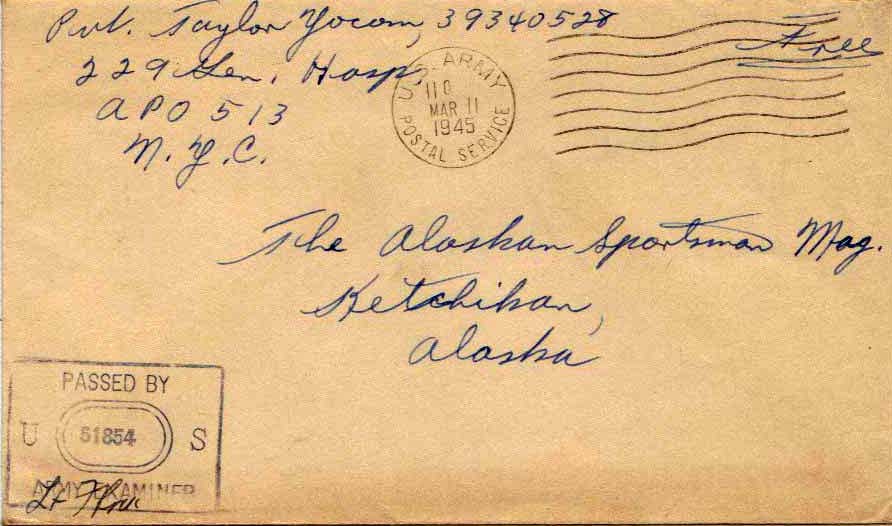 Pvt. Taylor Yocom, 39340528
229 Gen. Hosp,
APO 513
N.Y.C.
Free
U.S. ARMY
110
MAR 11
1945
POSTAL SERVICE
The Alaskan Sportsman Mag.
Ketchikan,
Alaska
PASSED BY
U 51854 S
ARMY EXAMINER
Lt